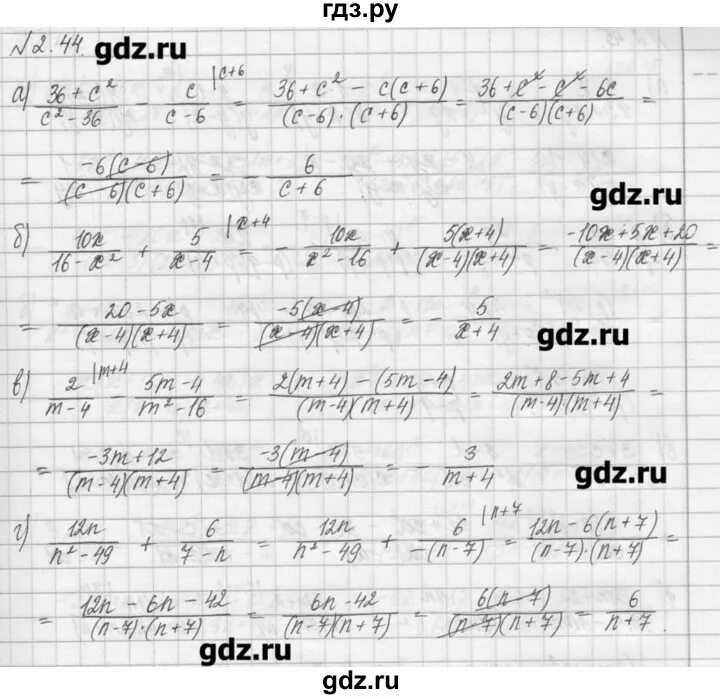 гдз.ру
№2.44. gdz.ru
а) (36+c²)/(c²-36) - c/(c-6) |c+6 = (36+c² - c(c+6))/((c-6)·(c+6)) = (36+c²-c²-6c)/((c-6)(c+6)) =
= (-6(c-6))/((c-6)(c+6)) = - 6/(c+6). gdz.ru
б) 10x/(16-x²) + 5/(x-4) |x+4 = - 10x/(x²-16) + 5(x+4)/((x-4)(x+4)) = (-10x+5x+20)/((x-4)(x+4)) =
= (20-5x)/((x-4)(x+4)) = (-5(x-4))/((x-4)(x+4)) = - 5/(x+4) gdz.ru
в) 2/(m-4) |m+4 - (5m-4)/(m²-16) = (2(m+4)-(5m-4))/((m-4)(m+4)) = (2m+8-5m+4)/((m-4)(m+4)) =
= (-3m+12)/((m-4)(m+4)) = (-3(m-4))/((m-4)(m+4)) = - 3/(m+4) gdz.ru
г) 12n/(n²-49) + 6/(7-n) = 12n/(n²-49) + 6/(-(n-7)) |n+7 = (12n-6(n+7))/((n-7)·(n+7)) =
= (12n-6n-42)/((n-7)·(n+7)) = (6n-42)/((n-7)(n+7)) = (6(n-7))/((n-7)(n+7)) = 6/(n+7).
gdz.ru
gdz.ru